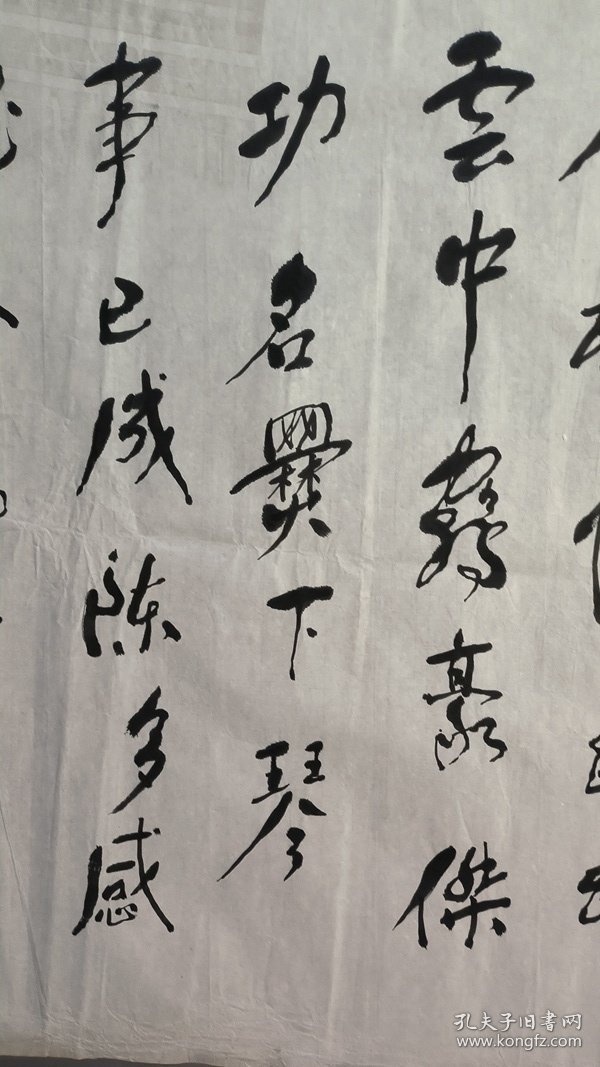 雲中鶴豪傑
功名爨下琴
事已成陈多感
孔夫子旧書网
www.kongfz.com